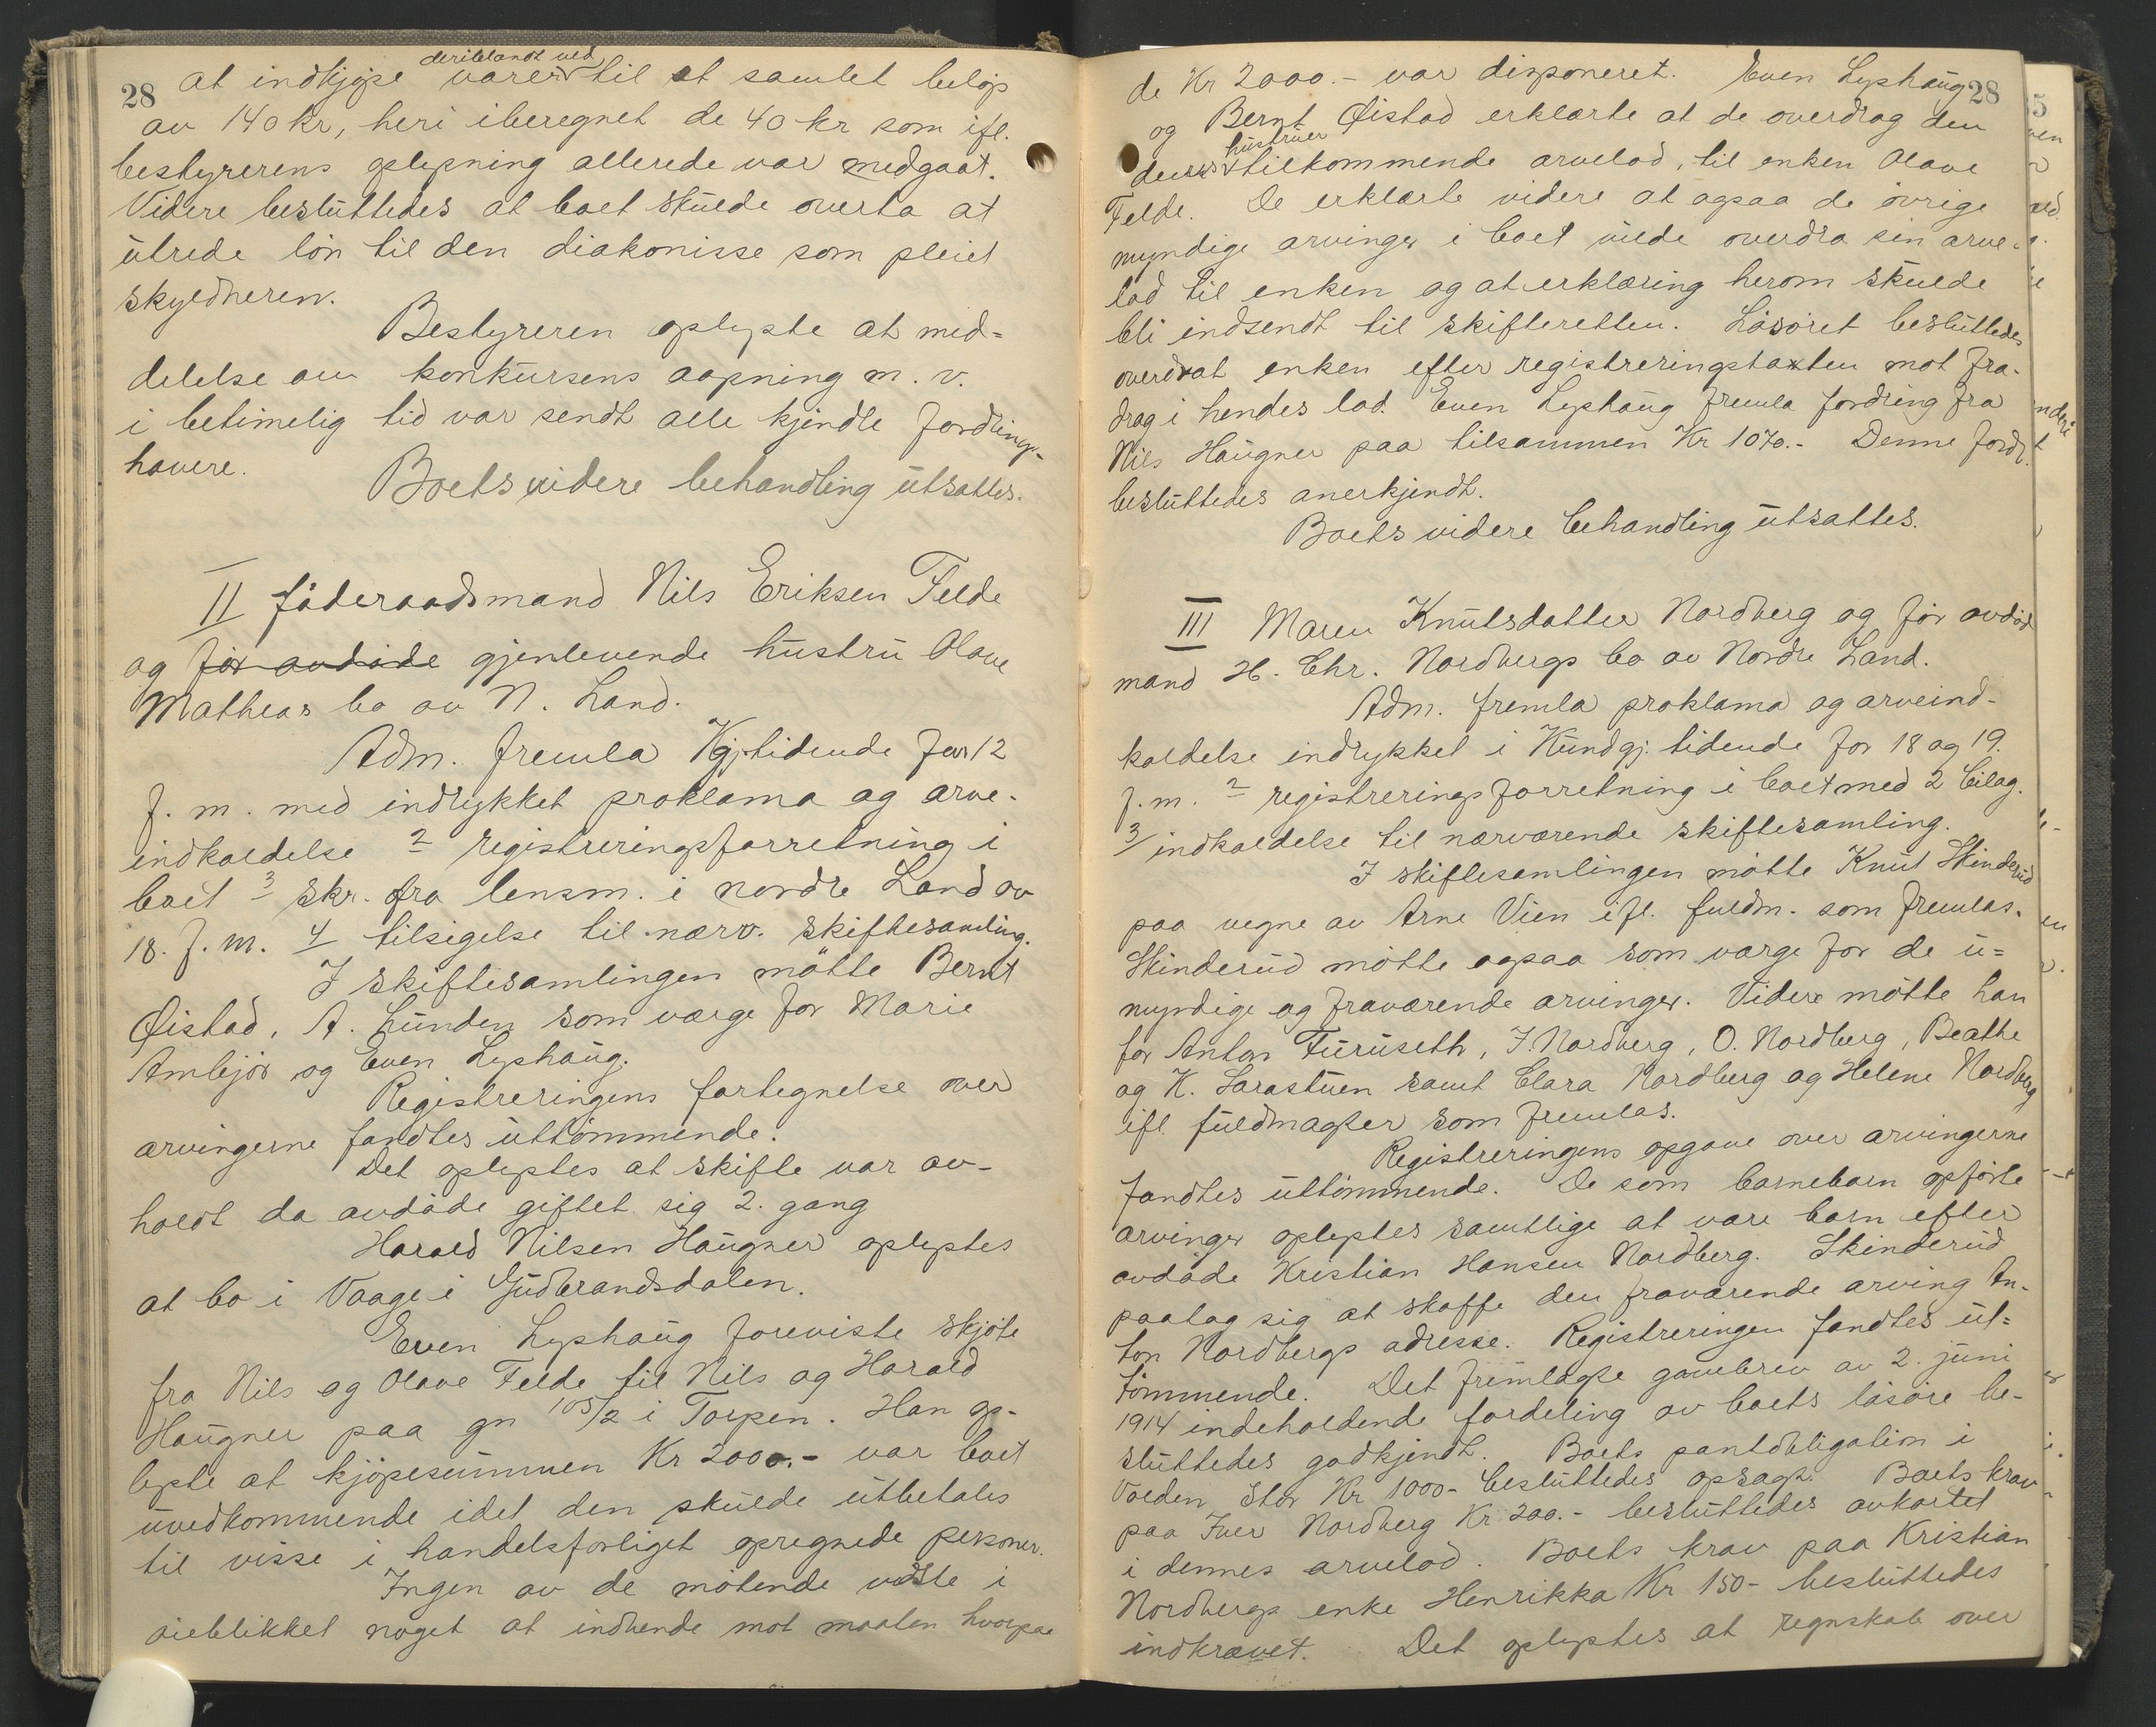 28
deriblandt ved
at indkjøpe varer til et samlet beløp
av 140 kr, heri iberegnet de 40 kr som ifl.
bestyrerens oplysning allerede var medgaat.
Videre besluttedes at boet skulde overta at
utrede løn til den diakonisse som pleiet
skyldneren.
Bestyreren oplyste at mid=
delelse om konkursens aapning m. v.
i betimelig tid var sendt alle kjendte fordrings-
havere.
Boets videre behandling utsattes.
II føderaadsmand Nils Eriksen Felde
og før avdøde gjenlevende hustru Olave
Matheas bo av N. Land.
Adm. fremla Kgj.tidende for 12
f. m. med indrykket proklama og arve-
indkaldelse 2 registreringsforretning i
boet 3 skr. fra lensm. i nordre Land av
18. f. m. 4 tilsigelse til nærv. skiftesamling.
I skiftesamlingen møtte Bernt
Øistad, A. Lunden som værge for Marie
Ambjør og Even Lyshaug.
Registreringens fortegnelse over
arvingerne fandtes uttømmende.
Det oplystes at skifte var av-
holdt da avdøde giftet sig 2. gang
Harald Nilsen Haugner oplystes
at bo i Vaage i Gudbrandsdalen.
Even Lyshaug foreviste skjøte
fra Nils og Olave Felde til Nils og Harald
Haugner paa gn 105/2 i Torpen. Han op-
lyste at kjøpesummen Kr 2000.- var boet
uvedkommende idet den skulde utbetales
til visse i handelsforliget opregnede personer.
Ingen av de møtende visste i
øieblikket noget at indvende mot maaten hvorpaa
28
de Kr 2000.- var disponeret. Even Lyshaug
og Bernt Øistad erklærte at de overdrog den
hustruer
deres tilkommende arvelod, til enken Olave
Felde. De erklærte videre at ogsaa de øvrige
myndige arvinger i boet vilde overdra sin arve-
lod til enken og at erklæring herom skulde
bli indsendt til skifteretten. Løsøret besluttedes
overdrat enken efter registreringstaxten mot fra-
drag i hendes lod. Even Lyshaug fremla fordring fra
Nils Haugner paa tilsammen Kr 1070.- Denne fordr.
besluttedes anerkjendt.
Boets videre behandling utsattes.
III Maren Knutsdatter Nordberg og før avdød
mand H. Chr. Nordbergs bo av Nordre Land.
Adm. fremla proklama og arveind-
kaldelse indrykket i Kundgj. tidende for 18 og 19.
f. m. 2 registreringsforretning i boet med 2 bilag.
3/ indkaldelse til nærværende skiftesamling.
I skiftesamlingen møtte Knut Skinderud
paa vegne av Arne Vien ifl. fuldm. som fremlas.
Skinderud møtte ogsaa som værge for de u=
myndige og fraværende arvinger. Videre møtte han
for Anton Furuseth, I. Nordberg, O. Nordberg, Beathe
og K. Sarastuen samt Clara Nordberg og Helene Nordberg
ifl. fuldmagter som fremlas.
Registreringens opgave over arvingerne
fandtes uttømmende. De som barnebarn opførte
arvinger oplystes samtlige at være barn efter
avdøde Kristian Hansen Nordberg. Skinderud
paatog sig at skaffe den fraværende arving An-
ton Nordbergs adresse. Registreringen fandtes ut=
tømmende. Det fremlagte gavebrev av 2. juni
1914 indeholdende fordeling av boets løsøre be-
sluttedes godkjendt. Boets pantobligation i
Volden stor Kr 1000- besluttedes opsagt. Boets krav
paa Iver Nordberg Kr. 200.- besluttedes avkortet
i dennes arvelod. Boets krav paa Kristian
Nordbergs enke Henrikka Kr 150- besluttedes
indkrævet. Det oplystes at regnskab over